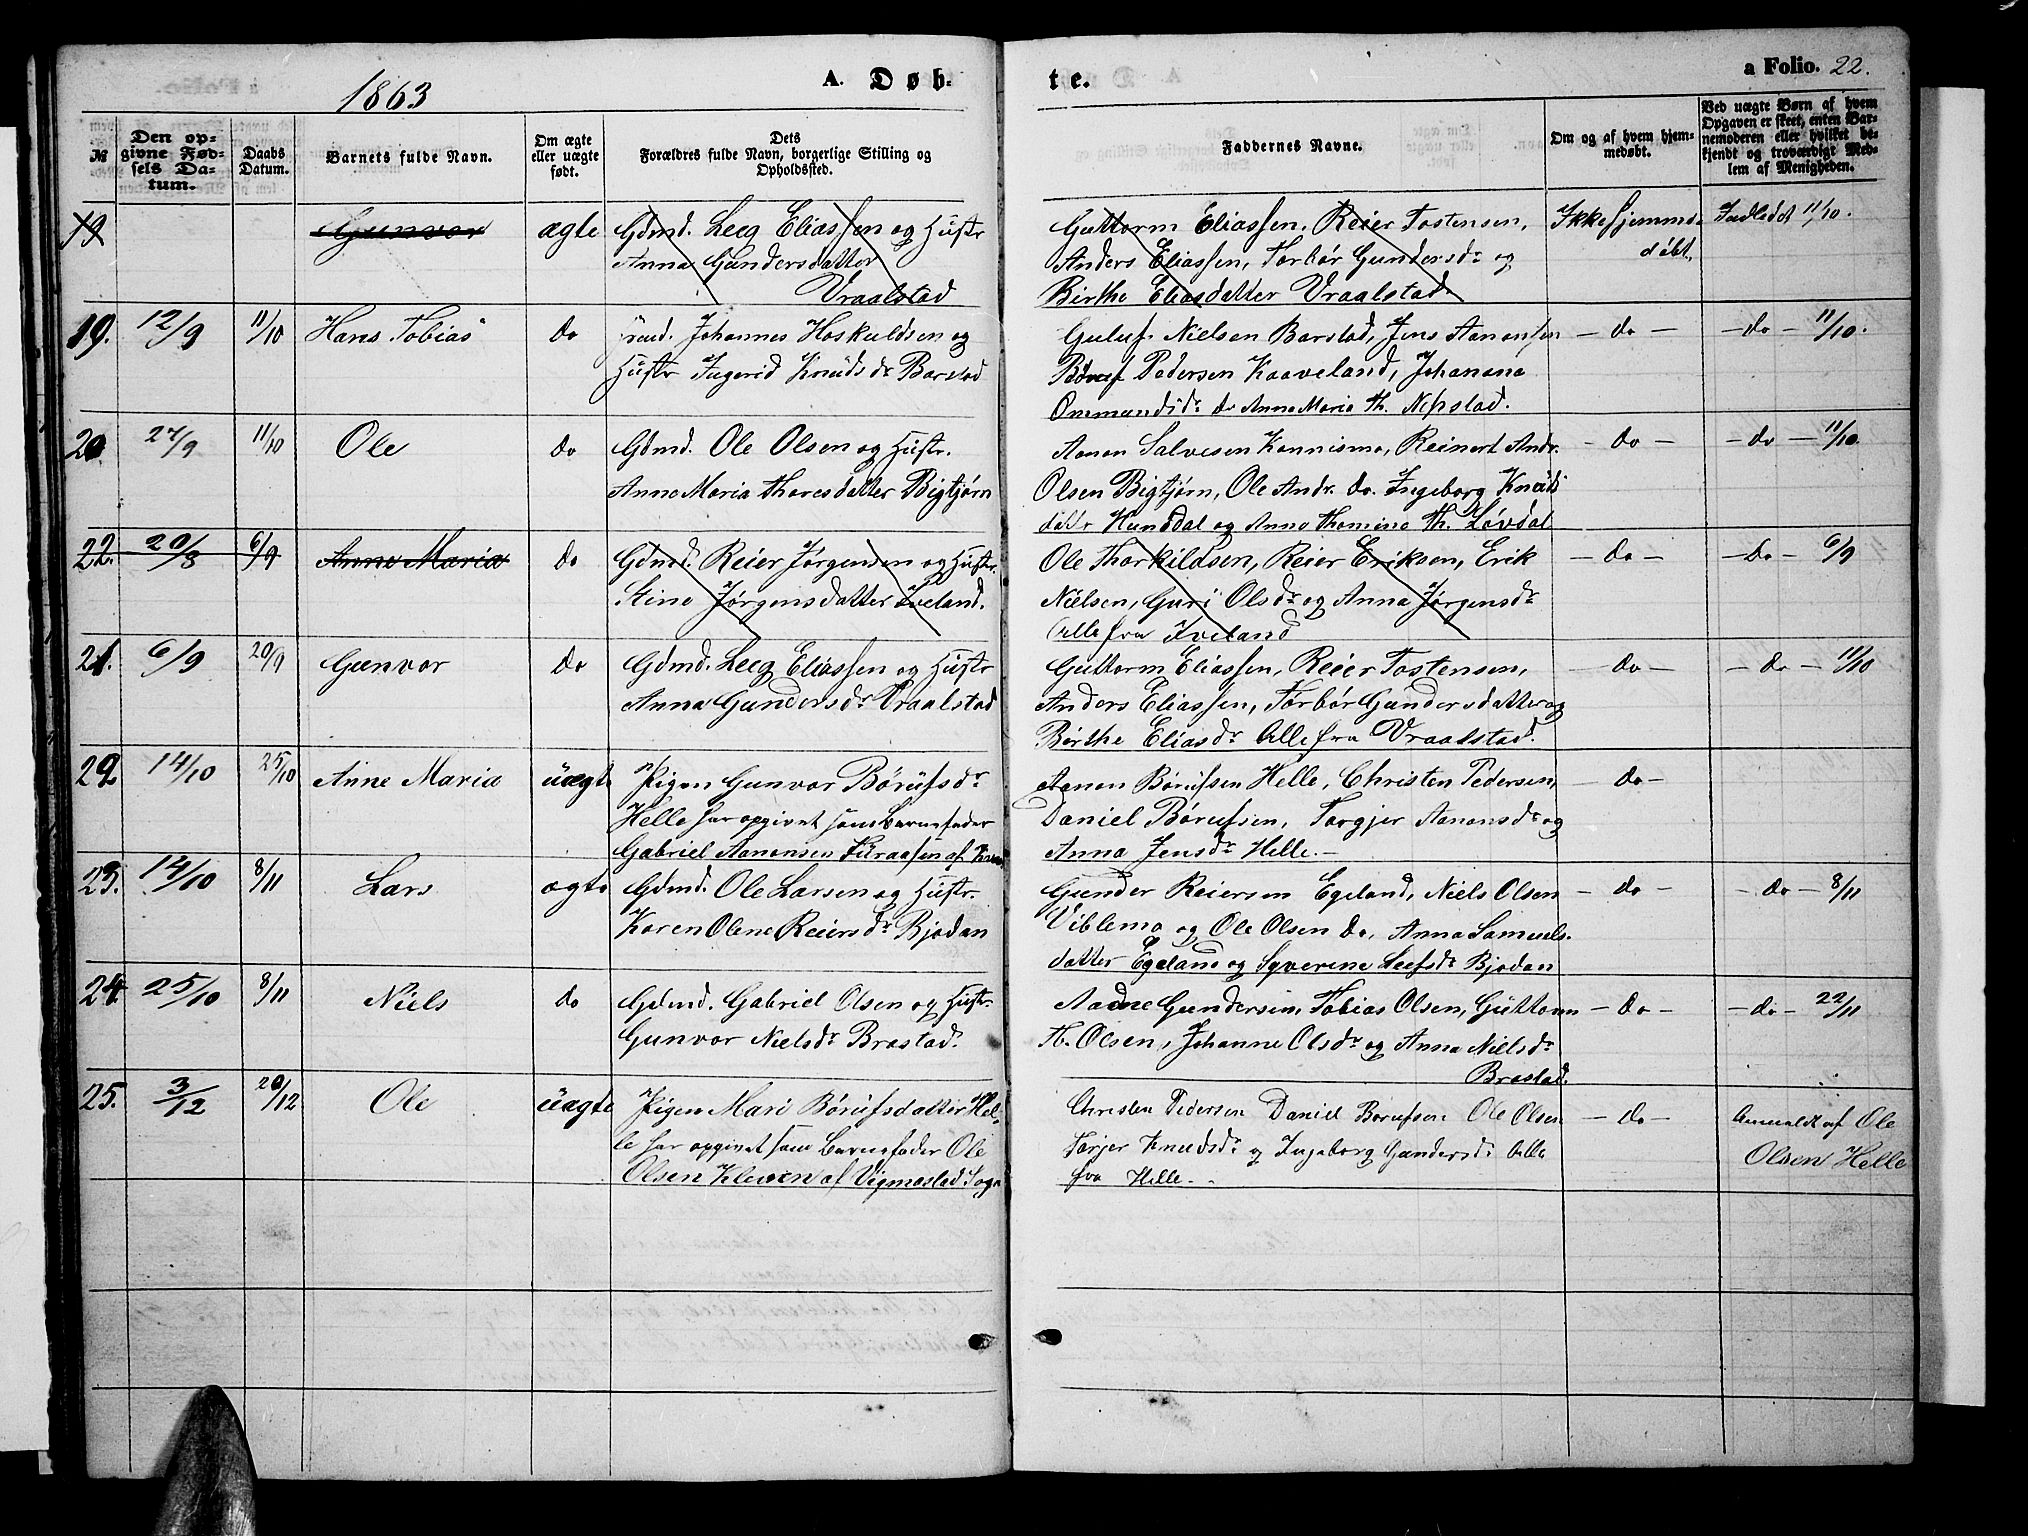 1863
A. Døb-
te.
a Folio. 22.
№
Den op-
givne Fød-
sels Da-
tum.
Daabs
Datum.
Barnets fulde Navn.
Om ægte
eller uægte
født.
Dets
Forældres fulde Navn, borgerlige Stilling og
Opholdssted.
Faddernes Navne.
Om og af hvem hjem-
medøbt.
Ved uægte Børn af hvem
Opgaven er skeet, enten Bar-
nemoderen eller hvilket be-
kjendt og troværdigt Med-
lem af Menigheden.
19
Gunvor
ægte
Gdmd. Leeg Eliassen og Hustr
Anna Gundersdatter
Vraalstad
Guttorm Eliassen, Reier Tostensen,
Anders Eliassen, Torbør Gundersdr og
Birthe Eliasdatter Vraalstad
Ikke hjemme
døbt.
Indledet 11/10.
19.
12/9
11/10
Hans Tobias
do
Johannes Hoskuldsen og
Hustr Ingerid Knudsdr Barstad
Guluf Nielsen Barstad, Jens Aanonsen
Pedersen Kaaveland, Johanne
Ommundsdr do Anne Maria Th. Nepstad.
– do –
– do – 11/10.
20
27/9
11/10
Ole
do
Gdmd. Ole Olsen og Hustr.
Anne Maria Thoresdatter Bigtjørn
Aanon Salvesen Konnismo, Reinert Andr.
Olsen Bigtjørn, Ole Andr. do. Ingeborg Knuds
datr Hunsdal og Anne Thomine Th. Løvdal
– do –
– do – 11/10.
22.
20/8
6/9
Anne Maria
do
Gdmd. Reier Jørgensen og Hustr.
Stine Jørgensdatter Iveland.
Ole Thorkildsen, Reier Eriksen, Erik
Nielsen, Guri Olsdr og Anna Jørgensdr
Alle fra Iveland
– do –
– do – 6/9
21.
6/9
20/9
Gunvor
do
Gdmd. Leeg Eliassen og Hustr
Anna Gundersdr Vraalstad
Guttorm Eliassen, Reier Tostensen,
Anders Eliassen, Torbør Gundersdatter og
Birthe Eliasdr Alle fra Vraalstad.
– do –
– do – 11/10
22
14/10
25/10
Anne Maria
uægte
Pigen Gunvor Børufsdr
Helle har opgivet som Barnefader
Gabriel Aanonsen af
Aanon Børufsen Helle, Christen Pedersen,
Daniel Børufsen, Torgjer Aanonsdr og
Anna Jensdr Helle. –
– do –
23.
14/10
8/11
Lars
ægte
Gdmd. Ole Larsen og Hustr.
Karen Olene Reiersdr Bjodan
Gunder Reiersen Egeland, Niels Olsen
Viblemo og Ole Olsen do, Anna Samuels-
datter Egeland og Syverine Leefsdr Bjodan
– do –
– do – 8/11
24.
25/10
8/11
Niels
do
Gdmd. Gabriel Olsen og Hustr.
Gunvor Nielsdr Brastad.
Aadne Gundersen, Tobias Olsen, Guttorm
Th. Olsen, Johanne Olsdr og Anna Nielsdr
Brastad.
– do –
– do – 22/11
25.
3/12
20/12
Ole
uægte
Pigen Mari Børufsdatter Hel-
le har opgivet som Barnefader Ole
Olsen Kleven af Vigmostad Sogn
Christen Pedersen Daniel Børufsen Ole Olsen
Torjer Knudsdr og Ingeborg Gundersdr Alle
fra Helle.
– do –
Anmeldt af Ole
Olsen Helle